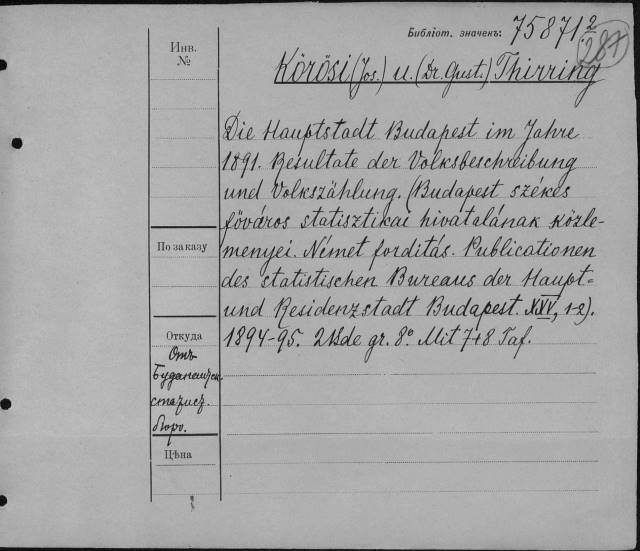 Библіот. значекъ: 75871 2
287
Инв. №
Körösi (Jos.) u. (Dr. Gust.) Thirring
Die Hauptstadt Budapest im Jahre
1891. Resultate der Volksbeschreibung
und Volkszählung. (Budapest székes
főváros statisztikai hivatalának közle-
menyei. Német forditás. Publicationen
des statistischen Bureaus der Haupt=
und Residenzstadt Budapest. XXV, 1-2).
1894-95. 2 Bde gr. 8° Mit 7+8 Taf.
По заказу
Откуда
Отъ
Будапештск.
статист.
бюро.
Цѣна